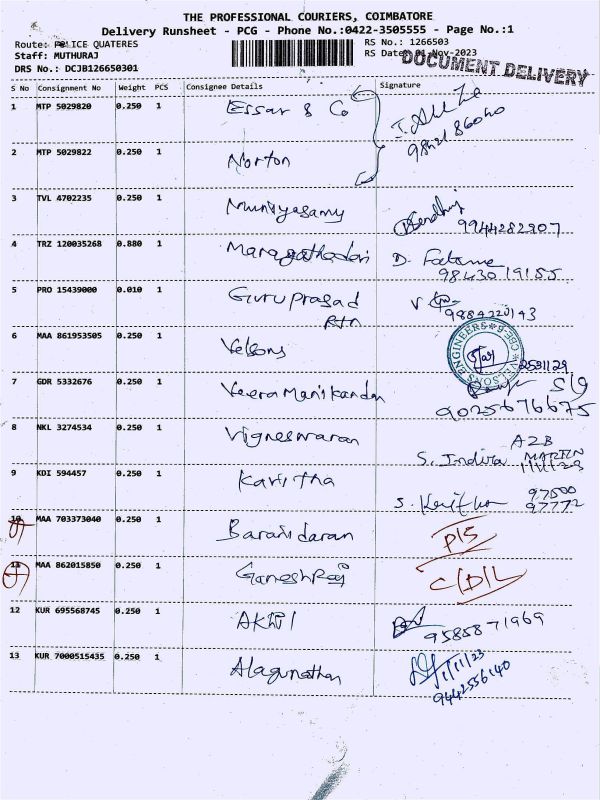 THE PROFESSIONAL COURIERS, COIMBATORE
Delivery Runsheet - PCG - Phone No.:0422-3505555 - Page No.:1
Route: POLICE QUATERES
RS No.: 1266503
Staff: MUTHURAJ
RS Date: 01-Nov-2023
DRS No.: DCJB126650301
DOCUMENT DELIVERY
S No Consignment No Weight PCS Consignee Details Signature
1 MTP 5029820 0.250 1 Essar & Co
9842186040
2 MTP 5029822 0.250 1 Norton
3 TVL 4702235 0.250 1 Muniyasamy
9944282307
4 TRZ 120035268 0.880 1 D. Fatima
98430 19155
5 PRO 15439000 0.010 1 Guruprasad
Rtn
9884220143
6 MAA 861953505 0.250 1 Velsons
VELSONS ENGINEERS
2531129
7 GDR 5332676 0.250 1 Veera Manikandan
9025676675
8 NKL 3274534 0.250 1 Vigneswaran
S. Indira
9 KDI 594457 0.250 1 Kavitha
97500
97772
10 MAA 703373040 0.250 1 Baranidaran
P/S
11 MAA 862015850 0.250 1 GaneshRaj
C/D/L
12 KUR 695568745 0.250 1 Akhil
95858 71969
13 KUR 7000515435 0.250 1 Alagunathan
1/11/23
9442556140